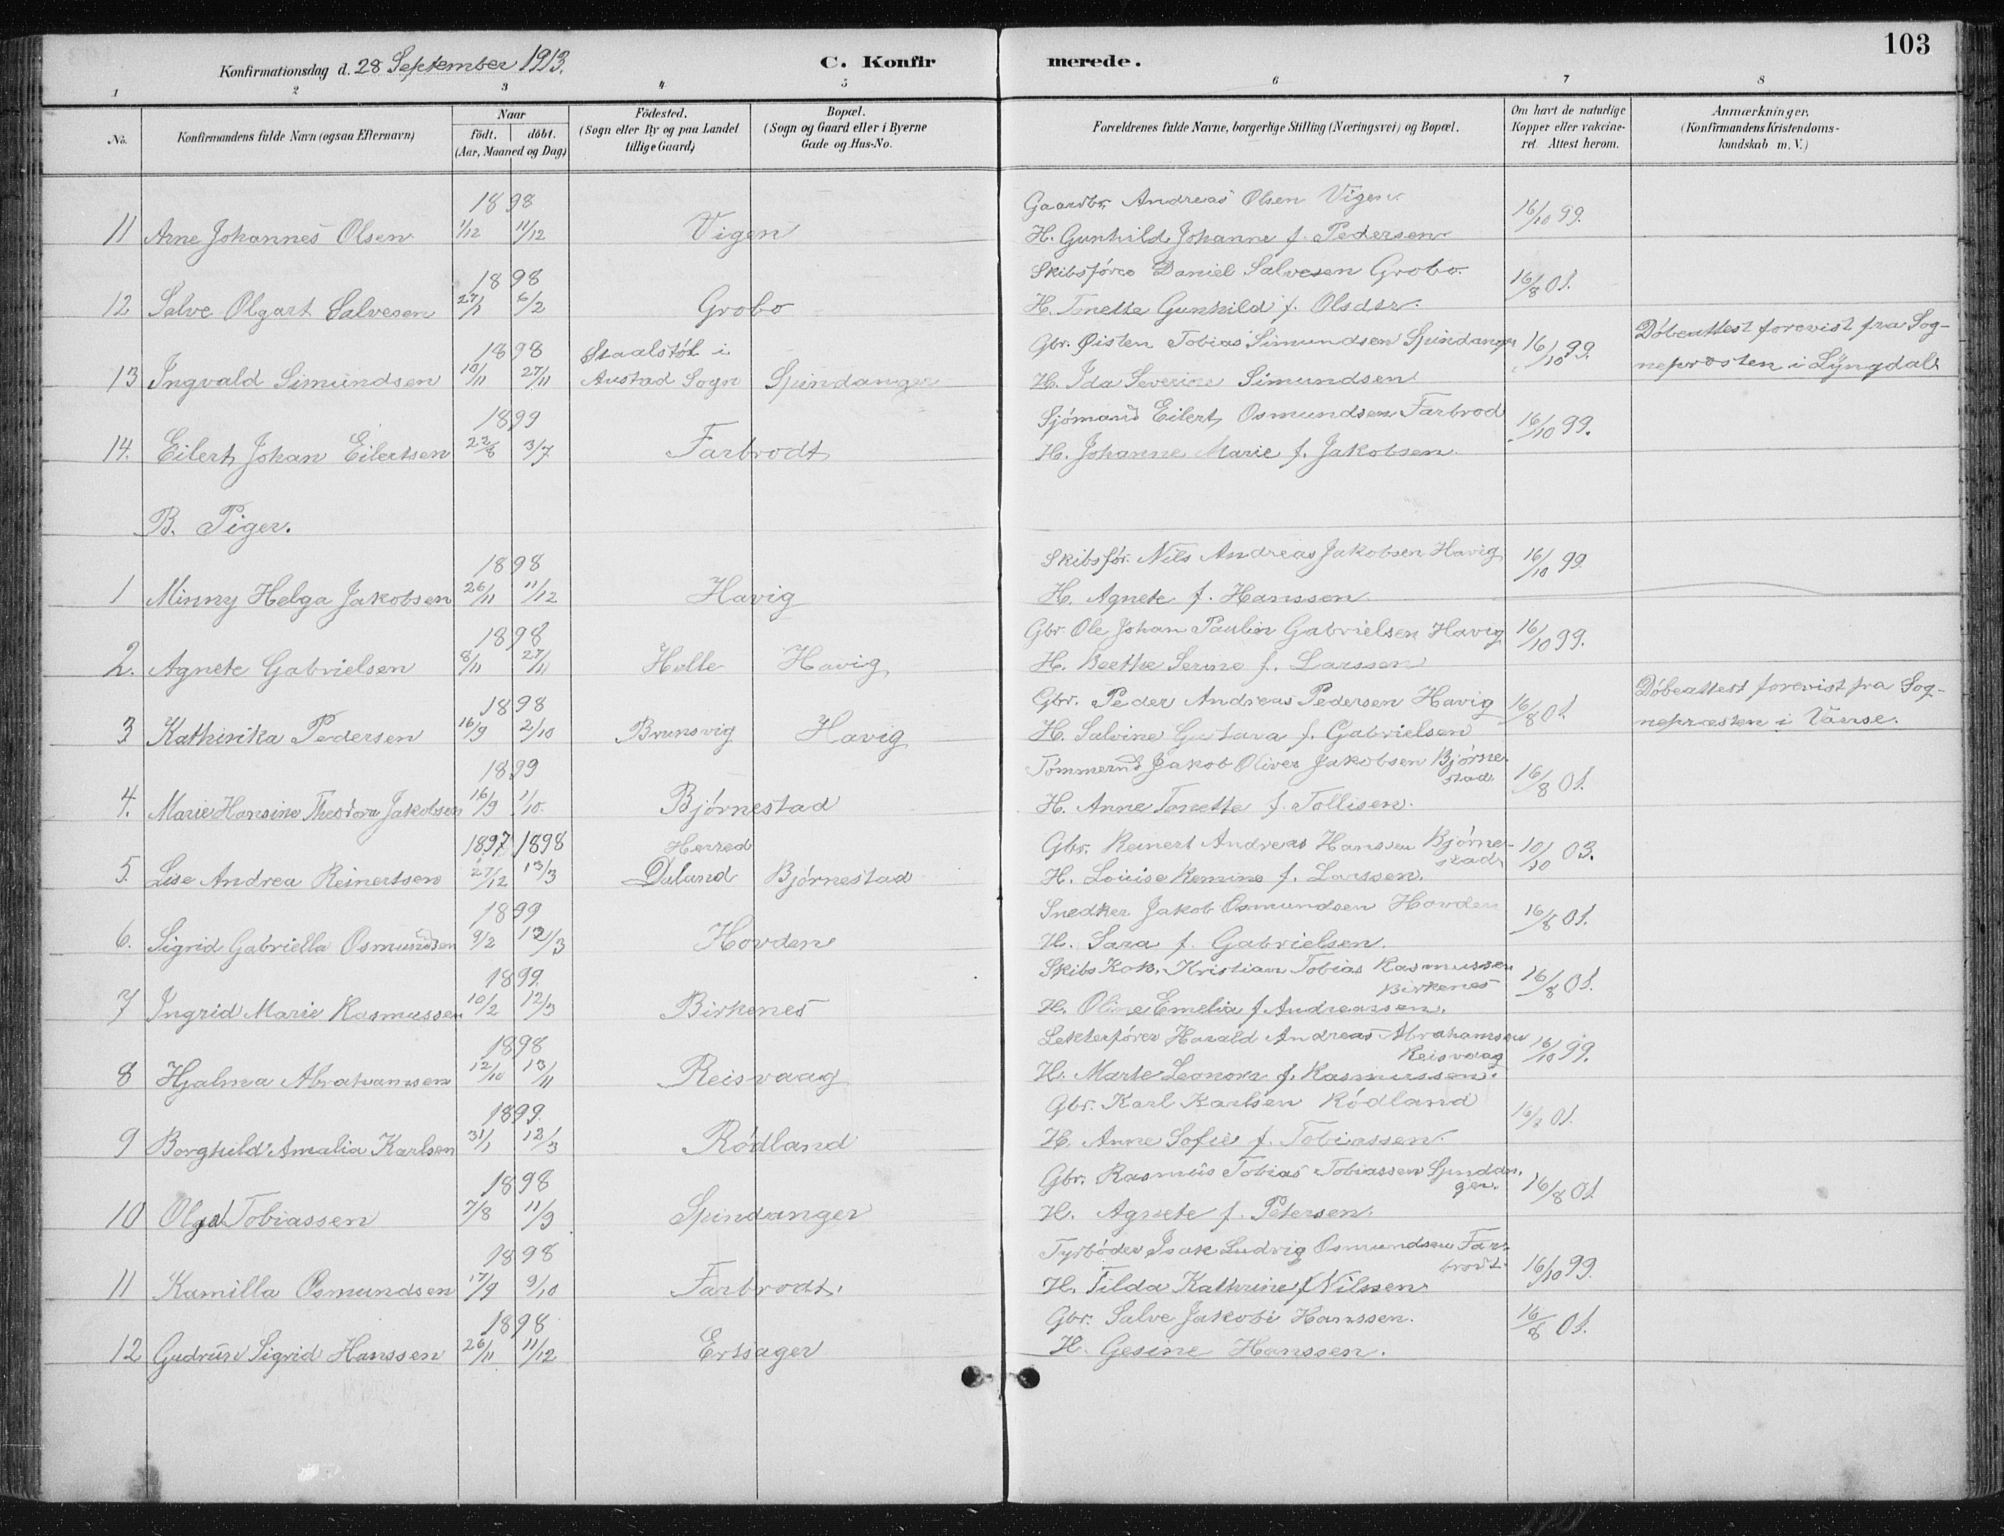 103
Konfirmationsdag d. 28 September 1913. C. Konfirmerede.
1 2 3 4 5 6 7 8
No. Konfirmandens fulde Navn (ogsaa Efternavn) Naar födt. döbt. (Aar, Maaned og Dag) Födested. (Sogn eller By og paa Landet tillige Gaard) Bopæl. (Sogn og Gaard eller i Byerne Gade og Hus-No. Forældrenes fulde Navne, borgerlige Stilling (Næringsvei) og Bopæl. Om havt de naturlige Kopper eller vakcineret. Attest herom. Anmærkninger. (Konfirmandens Kristendomskundskab m. V.)
1898 Gaardbr. Andreas Olsen Vigen. 16/10 99.
11 Arne Johannes Olsen 1/12 11/12 Vigen H. Gunhild Johanne f. Pedersen
1898 Skibsfører Daniel Salvesen Grobo. 16/8 01.
12 Salve Olgart Salvesen 27/1 6/2 Grobo H. Tonette Gunhild f. Olsdtr.
1898 Staalstøl i Gbr. Øisten Tobias Simundsen Spindanger 16/10 99. Døbeattest forevist fra Sog-
13 Ingvald Simundsen 10/11 27/11 Austad Sogn Spindanger H. Ida Severine Simundsen nepresten i Lyngdal
1899 Sjømand Eilert Osmundsen Farbrod 16/10 99.
14. Eilert Johan Eilertsen 3/7 Farbrodt H. Johanne Marie f. Jakobsen
B. Piger.
1898 Skibsfør. Nils Andreas Jakobsen Havig 16/10 99
1 Minny Helga Jakobsen 26/11 11/12 Havig H. Agnete f. Hanssen
1898 Gbr. Ole Johan Paulin Gabrielsen Havig 16/10 99.
2. Agnete Gabrielsen 8/11 27/11 Helle Havig H. Beethe Serine f. Larssen
1898 Gbr. Peder Andreas Pedersen Havig 16/8 01. Døbeattest forevist fra Sog-
3 Kathinka Pedersen 16/9 2/10 Brunsvig Havig H. Salvine Gustava f. Gabrielsen nepræsten i Vanse.
1899 Tømmermd Jakob Oliver Jakobsen Bjørne- 16/8 01.
stad
4. Marie Hansine Theodora Jakobsen 16/9 1/10. Bjørnestad H. Anne Tonette f. Tollisen.
1897 1898 Herred Gbr. Reinert Andreas Hanssen Bjørne- 10/10 03.
stad
5. Lise Andrea Reinertsen 27/12 13/3 Daland Bjørnestad H. Louise Remine f. Larssen.
1899 Snedker Jakob Osmundsen Hovden 16/8 01.
6. Sigrid Gabriella Osmundsen 9/2 12/3 Hovden H. Sara f. Gabrielsen.
1899. Skibs Kok. Kristian Tobias Rasmussen 16/8 01.
Birkenes
7 Ingrid Marie Rasmussen 10/2 12/3 Birkenes H. Oline Emelia f. Andreassen.
1898 Lekterfører Harald Andreas Abrahamsen 16/10 99.
Reisvaag
8 Hjalma Abrahamsen 12/10 13/11 Reisvaag H. Marte Leonora f. Rasmussen.
1899. Gbr. Karl Karlsen Rødland 16/8 01.
9 Borghild Amalia Karlsen 31/1 12/3 Rødland H. Anne Sofie f. Tobiassen.
1898 Gbr. Rasmus Tobias Tobiassen 16/8 01.
ger.
10 Olga Tobiassen 7/8 11/9 Spindanger H. Agnete f. Petersen.
1898 Fyrbøder Isak Ludvig Osmundsen Far- 16/10 99.
brodt.
11 Kamilla Osmundsen 17/9 9/10 Farbrodt. H. Tilda Kathrine f Nilssen.
1898 Gbr. Salve Jakobi Hanssen. 16/8 01.
12 Gudrun Sigrid Hanssen 26/11 11/12 Ersager H. Gesine Hanssen.